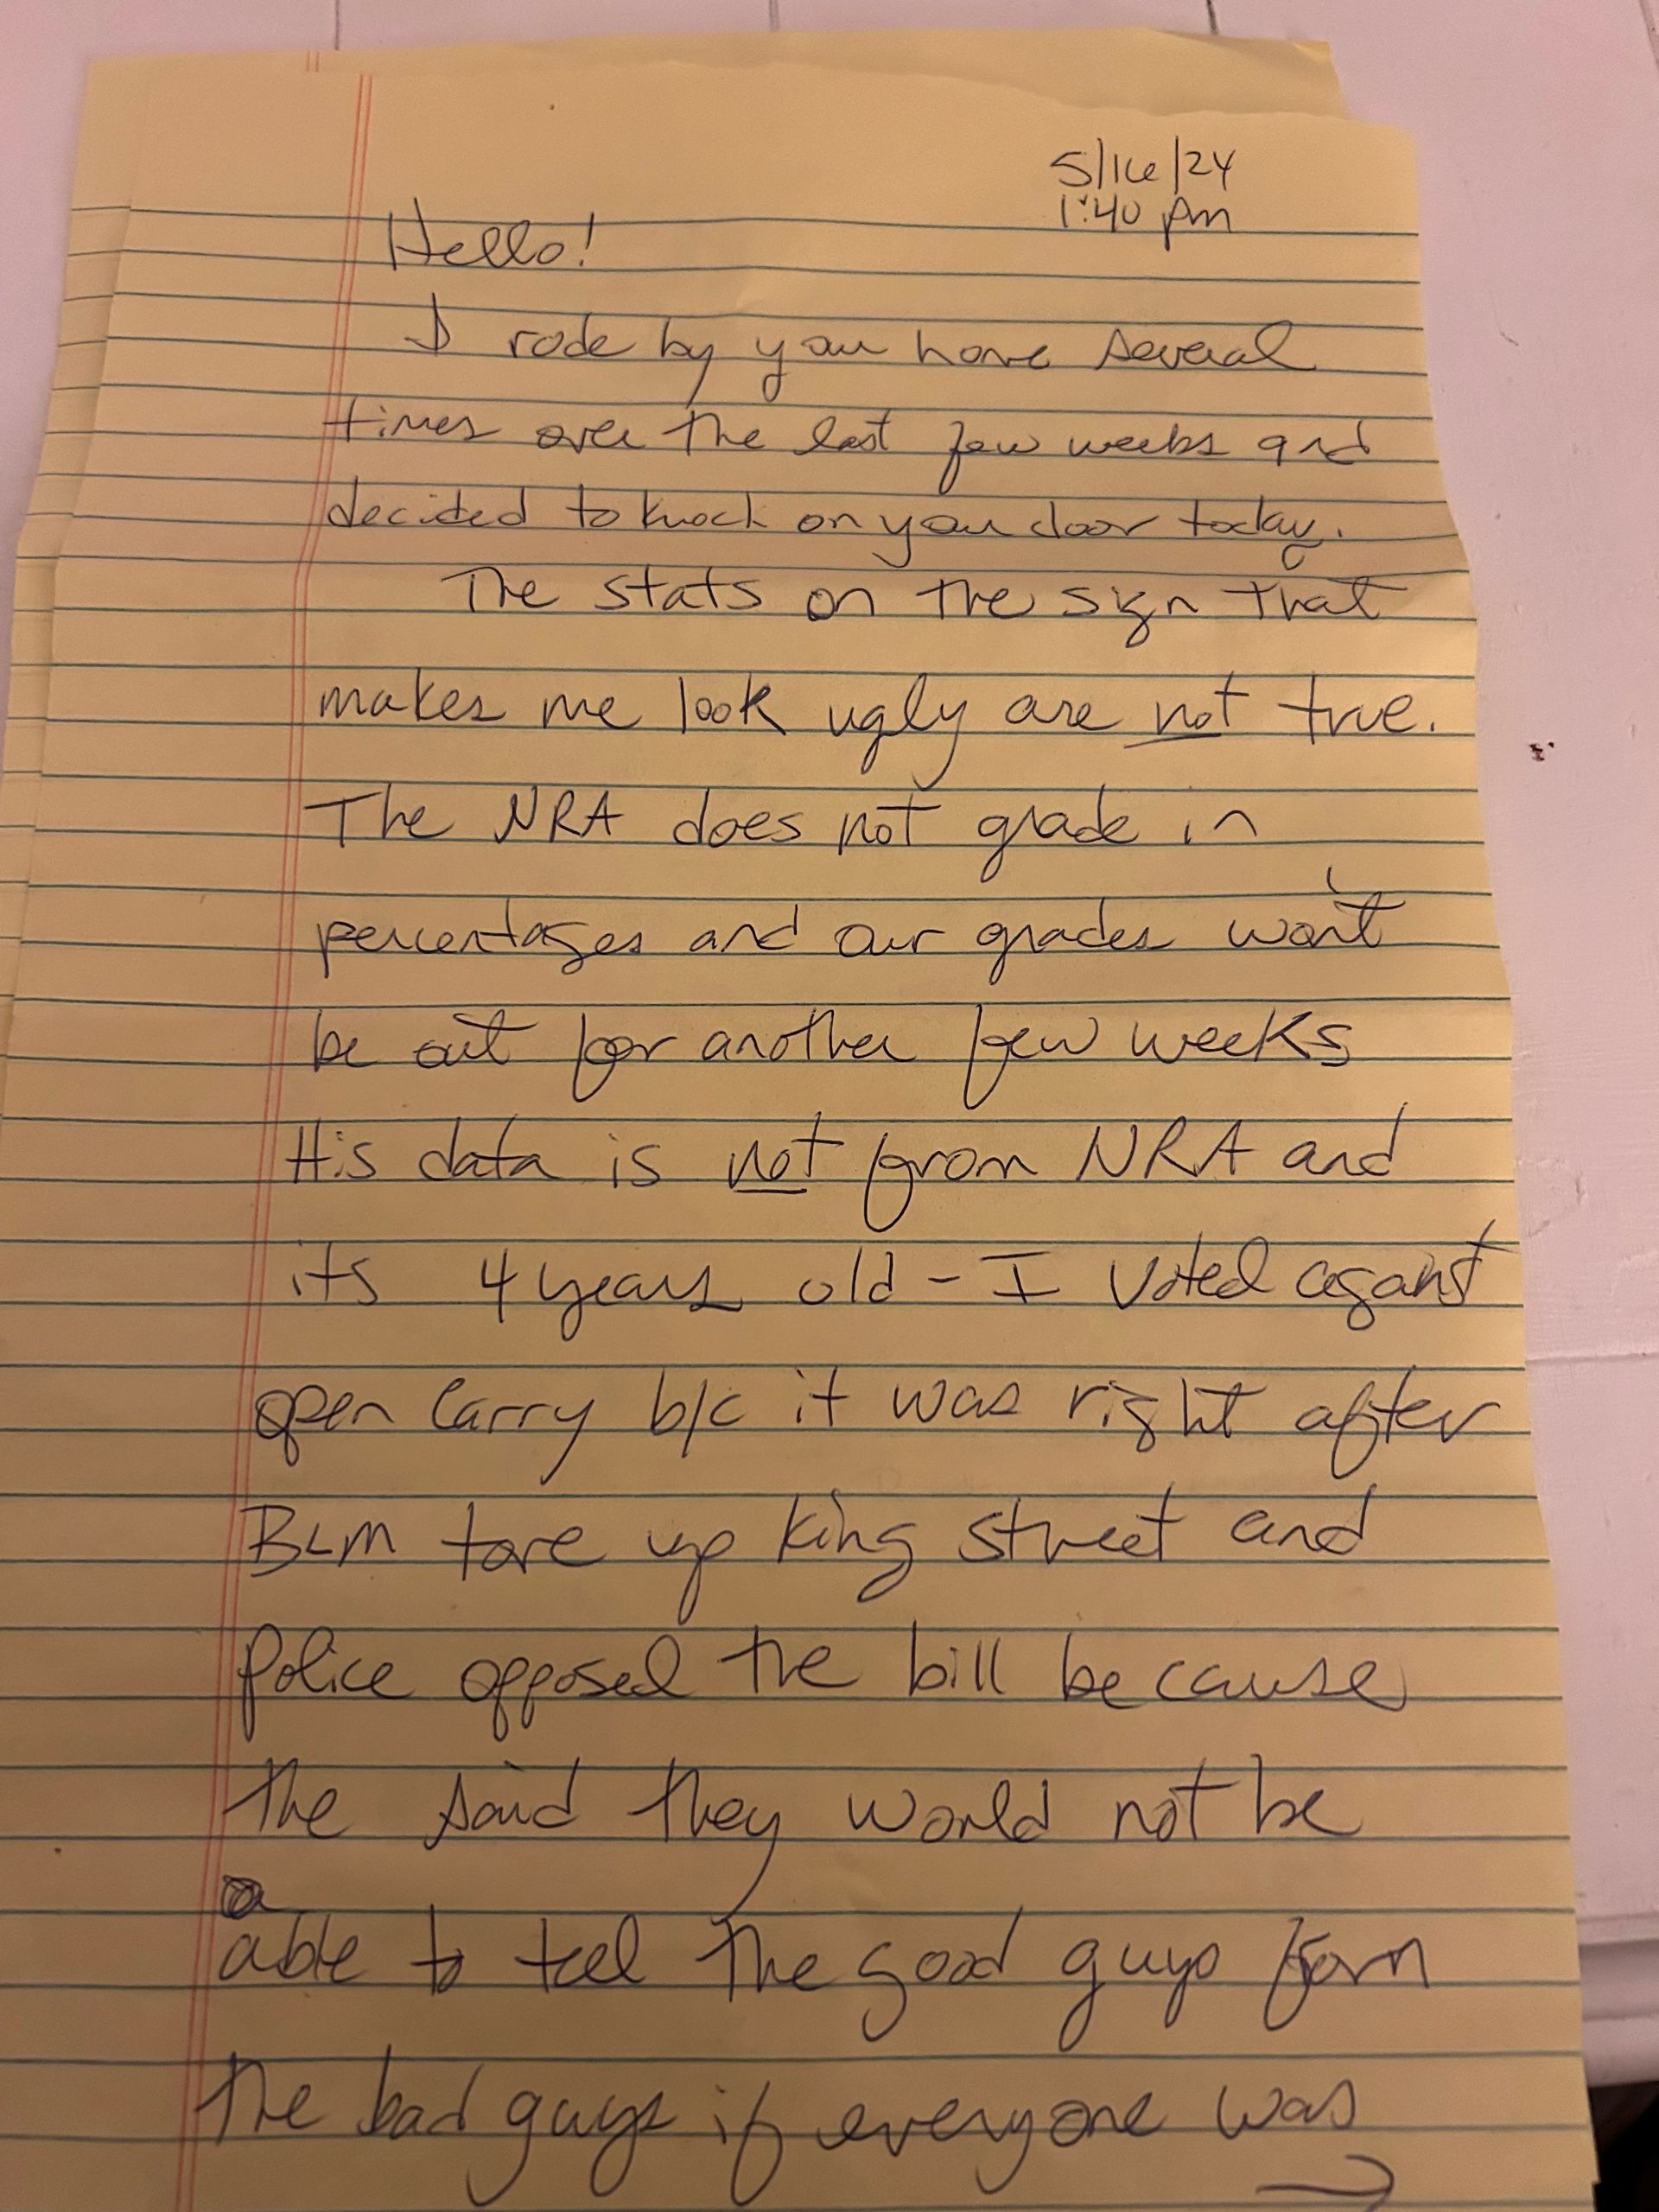 5/16/24
1:40 pm
Hello!
I rode by your home several
times over the last few weeks and
decided to knock on your door today.
The stats on the sign that
makes me look ugly are not true.
The NRA does not grade in
percentages and our grades won't
be out for another few weeks
His data is not from NRA and
its 4 years old - I voted against
open carry b/c it was right after
BLM tore up King Street and
Police opposed the bill because
the said they would not be
able to tell the good guys from
the bad guys if everyone was
→